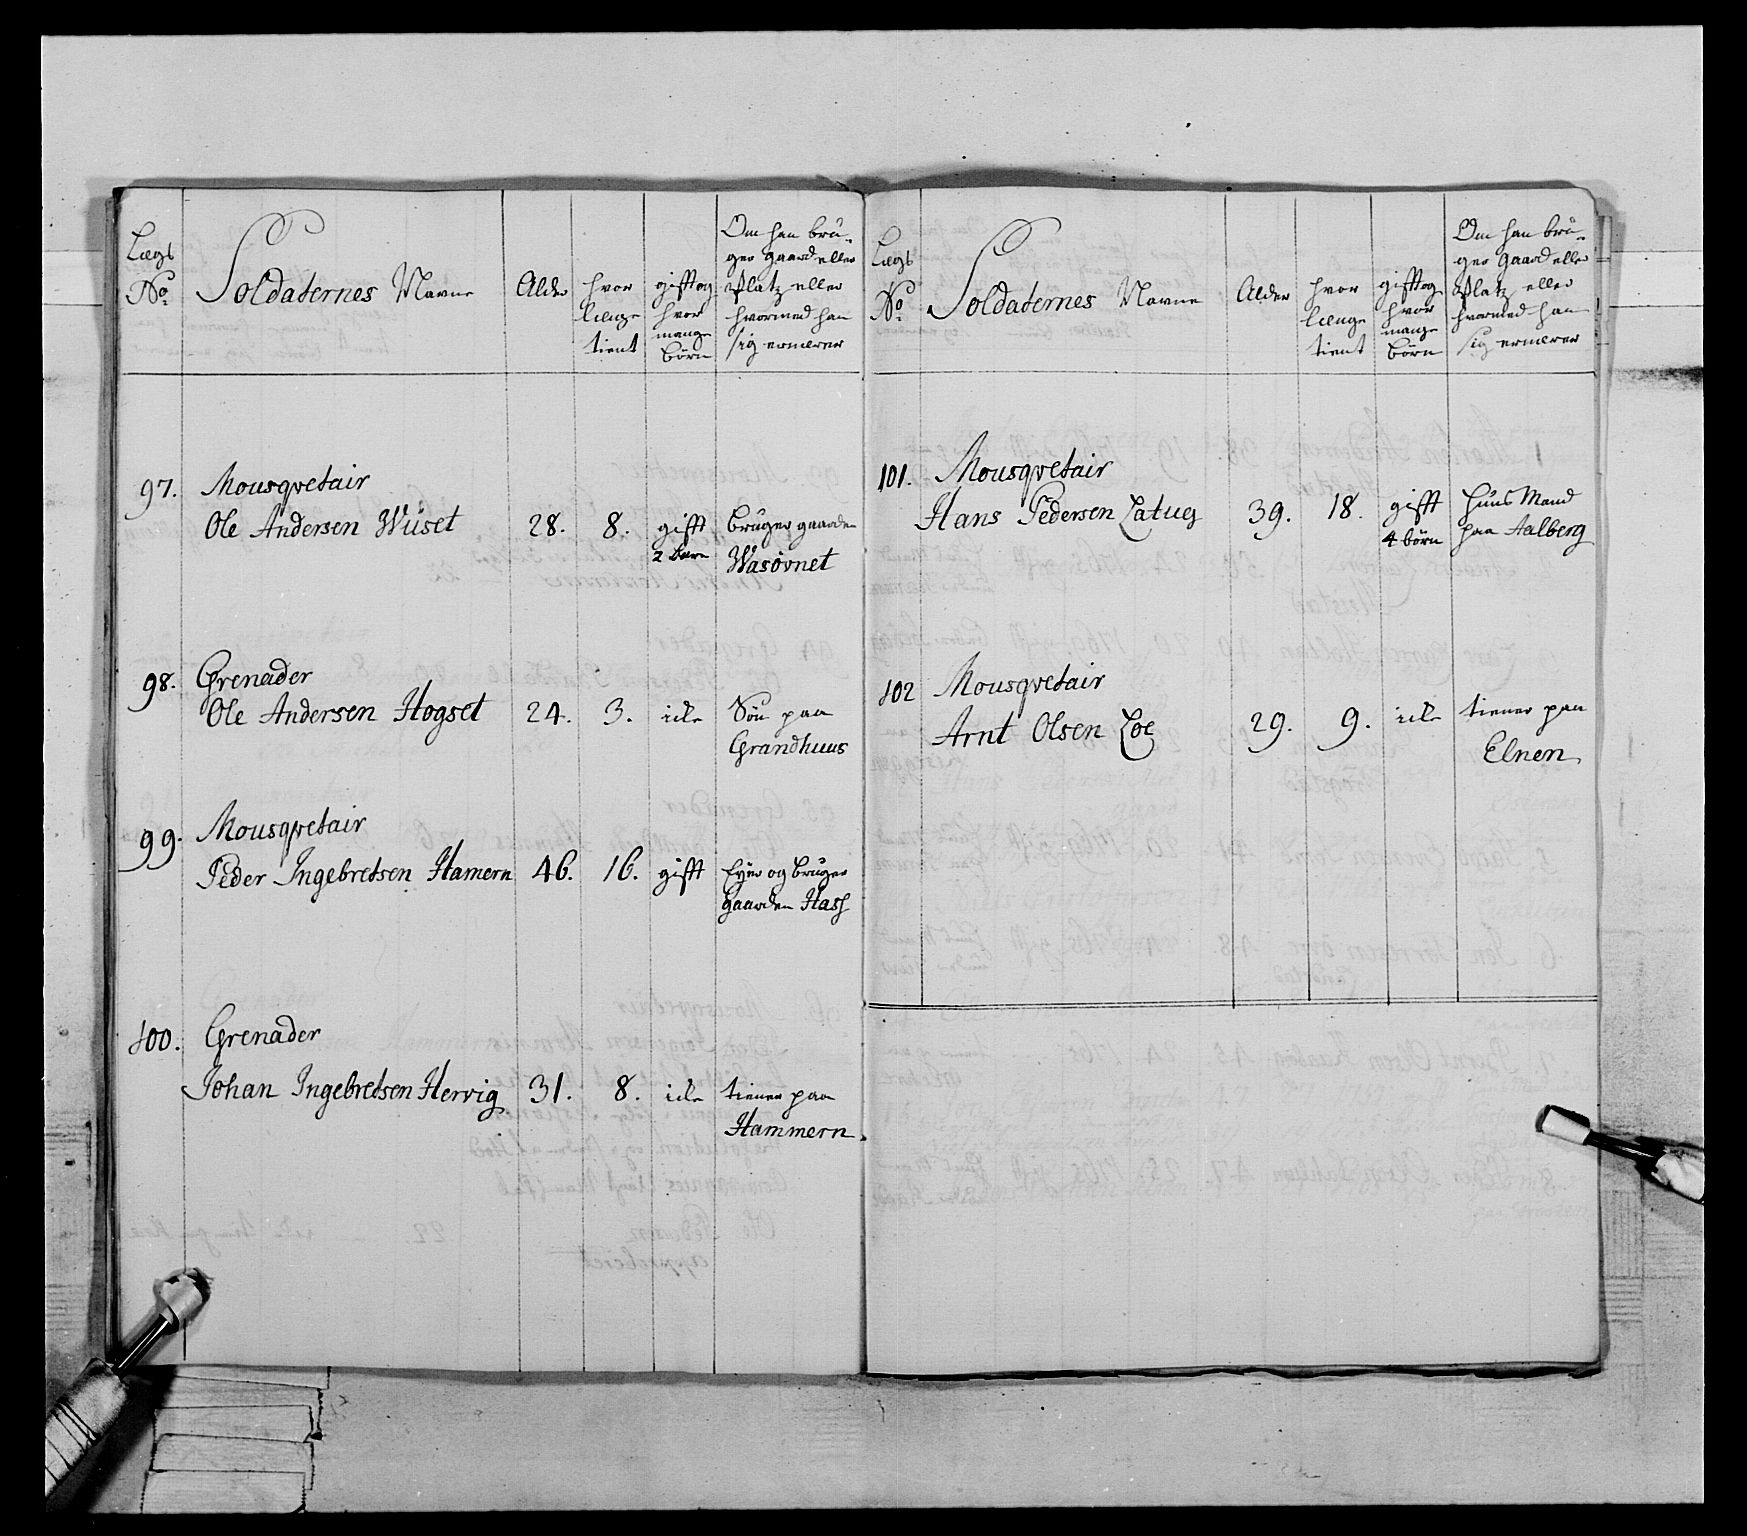 Lægs
No
Soldaternes Navne
Alder
hvor
længe
tient
gift og
hvor
mange
börn
Om han bru-
ger gaard eller
Platz eller
hvormed han
sig ernærer
97.
Mousqvetair
Ole Andersen Wüset
28.
8.
gifft
2 barn
bruger gaarden
Wasövnet
98.
Grenader
Ole Andersen Hogset
24.
3.
icke
Sön paa
Grandhuus
99.
Mousqvetair
Peder Ingebretsen Hamern
46.
16.
gifft
Eyer og bruger
gaarden Hass
100.
Grenader
Johan Ingebretsen Hervig
31.
8.
icke
tiener paa
Hammern
Lægs
No
Soldaternes Navne
Alder
hvor
længe
tient
gift og
hvor
mange
börn
Om han bru-
ger gaard eller
Platz eller
hvormed han
sig ernærer
101.
Mousqvetair
Hans Pedersen
39.
18.
gifft
4 börn
Huus Mand
paa Aalberg
102
Mousqvetair
Arnt Olsen Loe
29.
9.
icke
tiener paa
Elnen